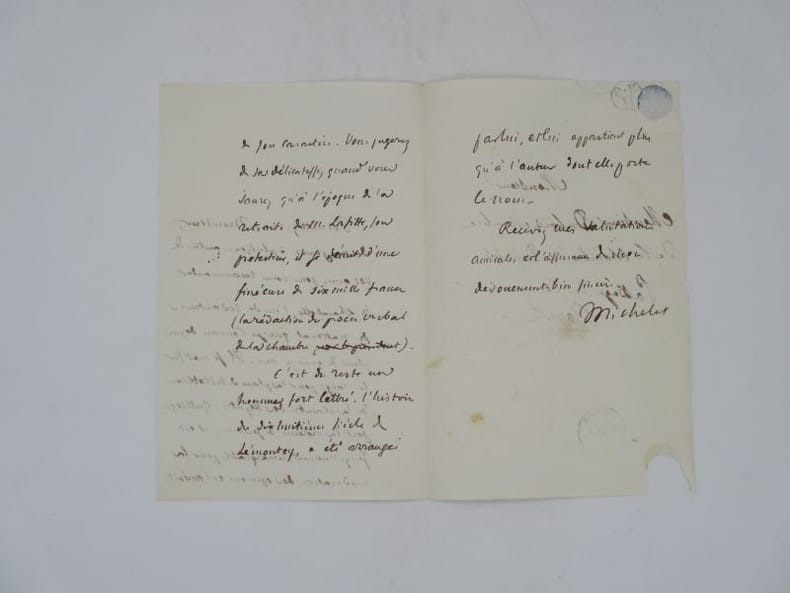 de son caractère. Vous jugerez
de sa délicatesse, quand vous
saurez qu'à l'époque de la
retraite de M. Lafitte, son
protecteur, il se démit d'une
sinécure de six mille francs
(la rédaction du procès verbal
de la chambre).
C'est du reste un
homme fort lettré. L'histoire
du dixhuitième siècle de
Lémontey, a été arrangé
par lui, et lui appartient plus
qu'à l'auteur dont elle porte
le nom.
Recevez mes salutations
amicales et l'assurance de mon
dévouement bien sincère
Michelet